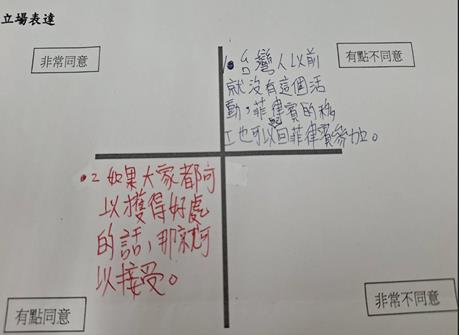 立場表達
非常同意
有點不同意
1. 台灣人以前
就沒有這個活
動，菲律賓的移
工也可以回菲律賓參加。
2 如果大家都可
以獲得好處
的話，那就可
以接受。
有點同意
非常不同意